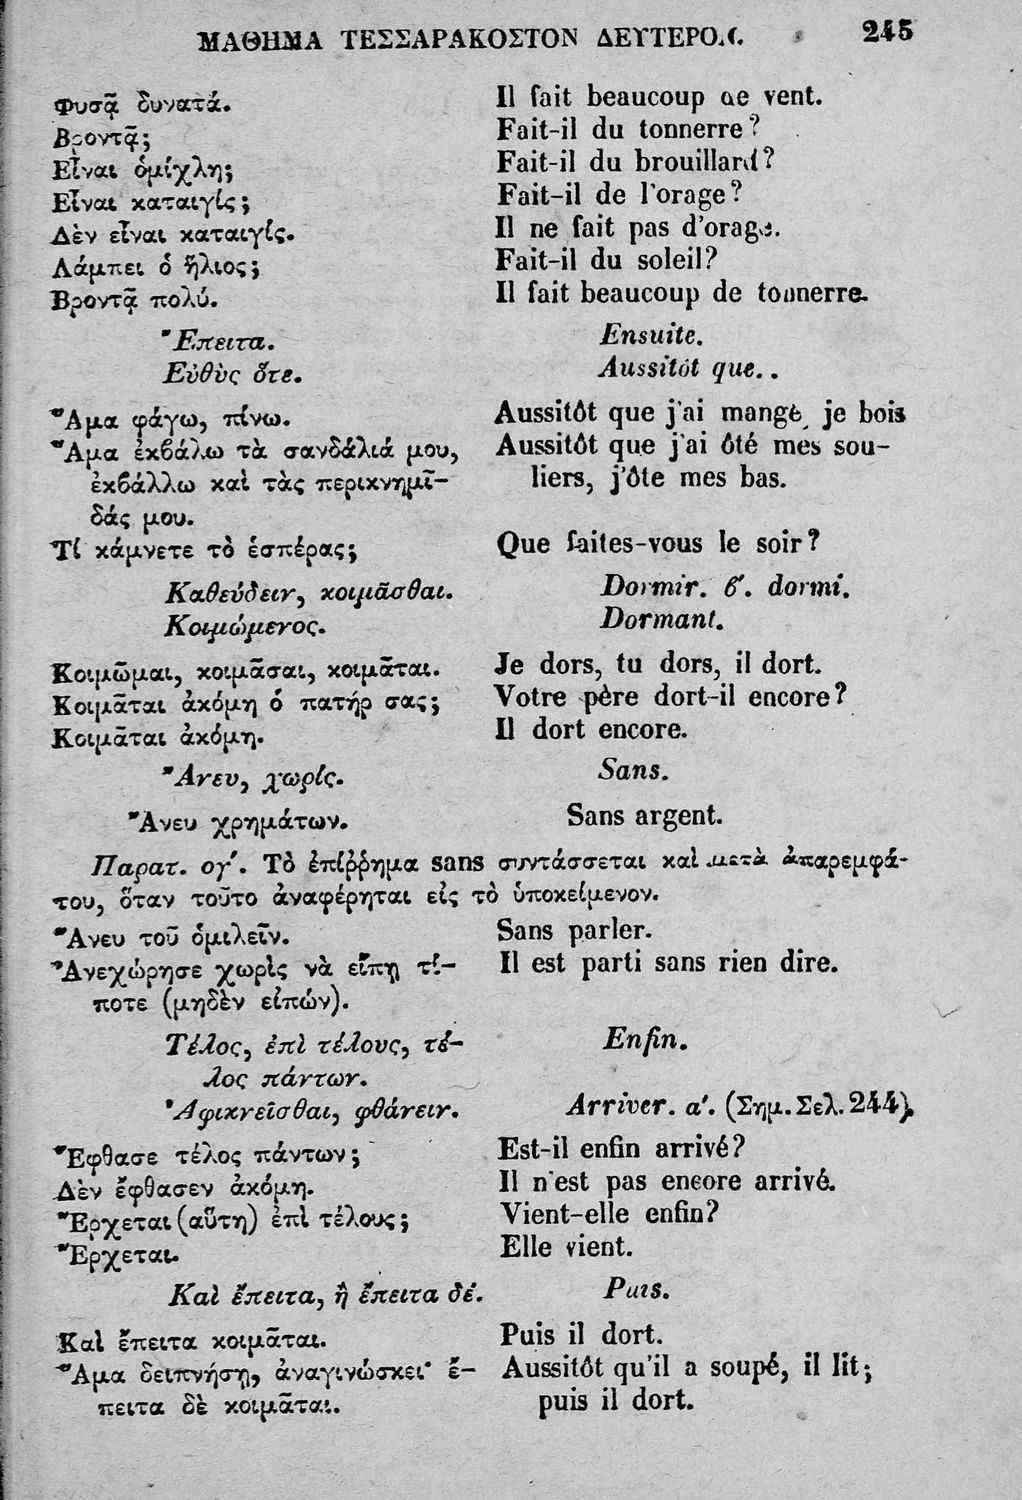 ΜΑΘΗΜΑ ΤΕΣΣΑΡΑΚΟΣΤΟΝ ΔΕΥΤΕΡΟΝ. 245
Φυσᾷ δυνατά. Il fait beaucoup de vent.
Βροντᾷ; Fait-il du tonnerre?
Εἶναι ὁμίχλη; Fait-il du brouillard?
Εἶναι καταιγίς; Fait-il de l'orage?
Δὲν εἶναι καταιγίς. Il ne fait pas d'orage.
Λάμπει ὁ ἥλιος; Fait-il du soleil?
Βροντᾷ πολύ. Il fait beaucoup de tonnerre.
Ἔπειτα. Ensuite.
Εὐθὺς ὅτε. Aussitôt que..
Ἅμα φάγω, πίνω. Aussitôt que j'ai mangé, je bois
Ἅμα ἐκβάλω τὰ σανδάλιά μου, Aussitôt que j'ai ôté mes sou-
ἐκβάλλω καὶ τὰς περικνημῖ- liers, j'ôte mes bas.
δάς μου.
Τί κάμνετε τὸ ἑσπέρας; Que faites-vous le soir?
Καθεύδειν, κοιμᾶσθαι. Dormir. β'. dormi.
Κοιμώμενος. Dormant.
Κοιμῶμαι, κοιμᾶσαι, κοιμᾶται. Je dors, tu dors, il dort.
Κοιμᾶται ἀκόμη ὁ πατήρ σας; Votre père dort-il encore?
Κοιμᾶται ἀκόμη. Il dort encore.
Ἄνευ, χωρίς. Sans.
Ἄνευ χρημάτων. Sans argent.
Παρατ. ογ'. Τὸ ἐπίῤῥημα sans συντάσσεται καὶ μετὰ ἀπαρεμφά-
του, ὅταν τοῦτο ἀναφέρηται εἰς τὸ ὑποκείμενον.
Ἄνευ τοῦ ὁμιλεῖν. Sans parler.
Ἀνεχώρησε χωρὶς νὰ εἴπῃ τί- Il est parti sans rien dire.
ποτε (μηδὲν εἰπών).
Τέλος, ἐπὶ τέλους, τέ- Enfin.
λος πάντων.
Ἀφικνεῖσθαι, φθάνειν. Arriver. α'. (Σημ. Σελ. 244).
Ἔφθασε τέλος πάντων; Est-il enfin arrivé?
Δὲν ἔφθασεν ἀκόμη. Il n'est pas encore arrivé.
Ἔρχεται (αὕτη) ἐπὶ τέλους; Vient-elle enfin?
Ἔρχεται. Elle vient.
Καὶ ἔπειτα, ἢ ἔπειτα δέ. Puis.
Καὶ ἔπειτα κοιμᾶται. Puis il dort.
Ἅμα δειπνήσῃ, ἀναγινώσκει· ἔ- Aussitôt qu'il a soupé, il lit;
πειτα δὲ κοιμᾶται. puis il dort.